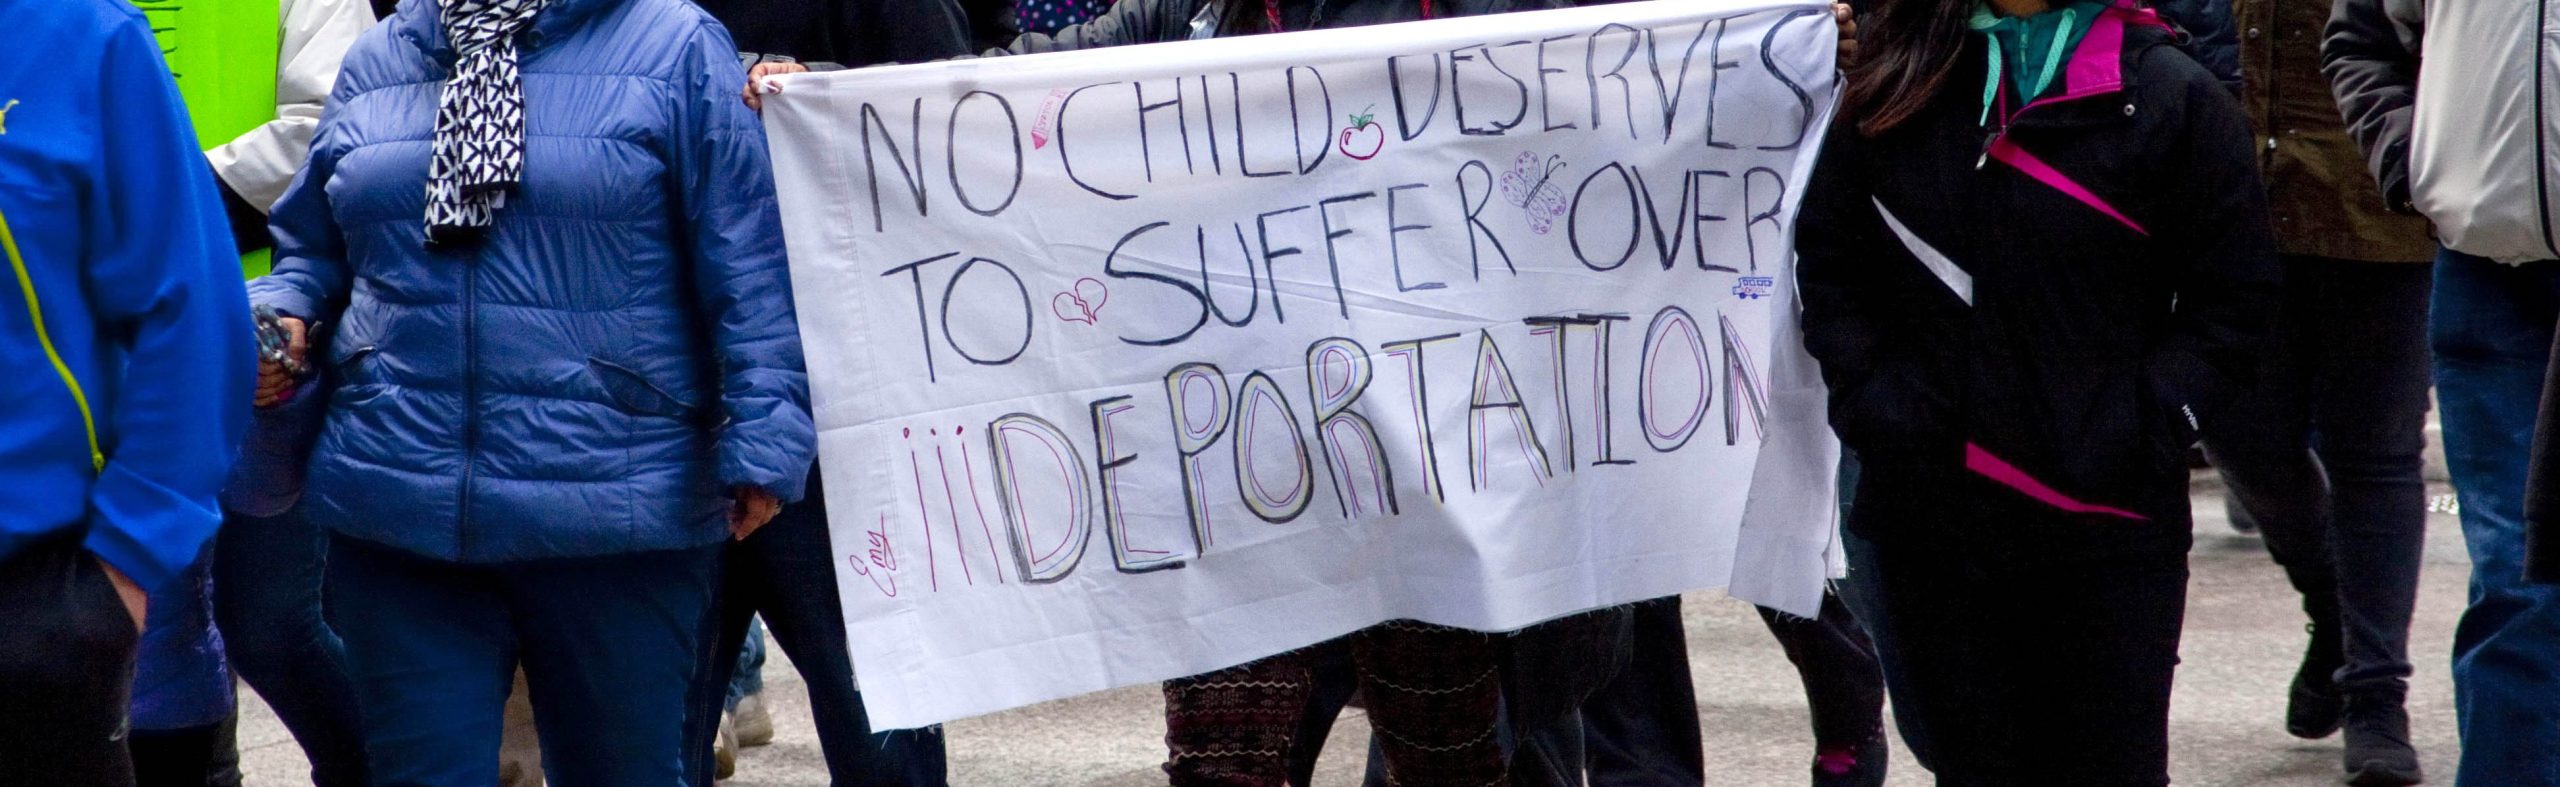 NO CHILD DESERVES
TO SUFFER OVER
¡¡¡DEPORTATION
Emy